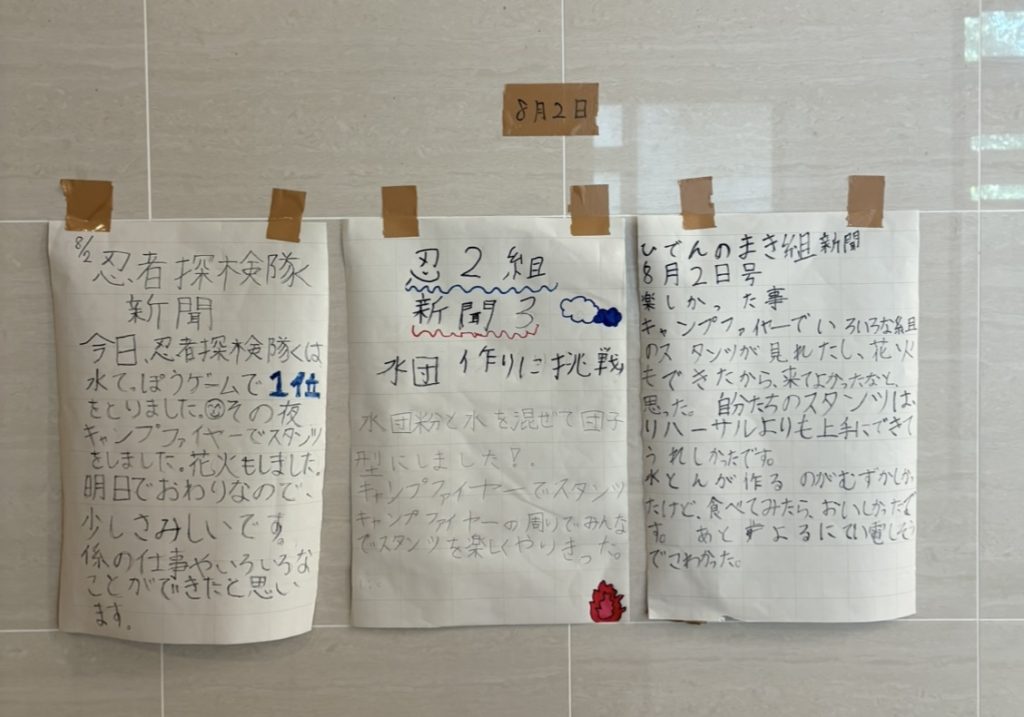 8月2日
8/2
忍者探検隊
新聞
今日、忍者探検隊は
水でっぽうゲームで1位
をとりました。その夜
キャンプファイヤーでスタンツ
をしました。花火もしました。
明日でおわりなので、
少しさみしいです。
係の仕事やいろいろな
ことができたと思い
ます。
忍2組
新聞3
水団 作りに挑戦
水団粉と水を混ぜて団子
型にしました!.
キャンプファイヤーでスタンツ
キャンプファイヤーの周りでみんな
でスタンツを楽しくやりきった。
ひでんのまき組新聞
8月2日号
楽しかった事
キャンプファイヤーでいろいろな組
のスタンツが見れたし、花火
もできたから、来てよかったなと、
思った。自分たちのスタンツは、
リハーサルよりも上手にできて
うれしかったです。
水とんが作るのがむずかしかっ
たけど、食べてみたら、おいしかったで
す。あと よるにてい電しそう
でこわかった。